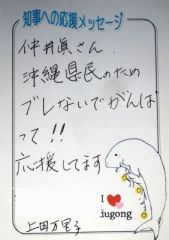 知事への応援メッセージ
仲井眞さん.
沖縄県民のため
ブレないでがんば
って!!
応援してます
I
iugong
上田万里子